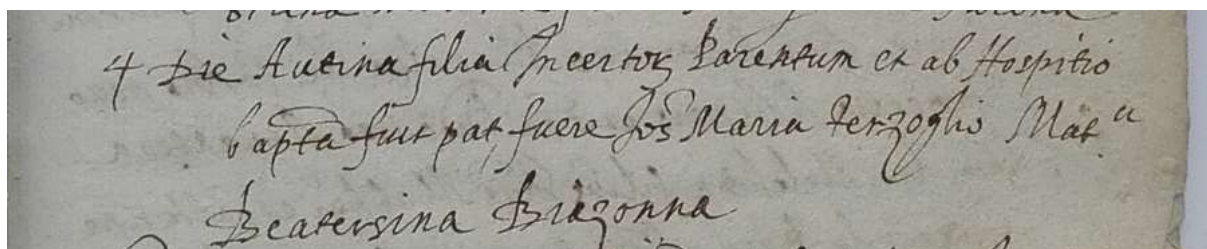 4 Die Autina filia Incertoꝝ Parentum et ab Hospitio
bapta fuit pat, fuere Jos Maria Terzoglio Mat.a
Beatersina Biazonna